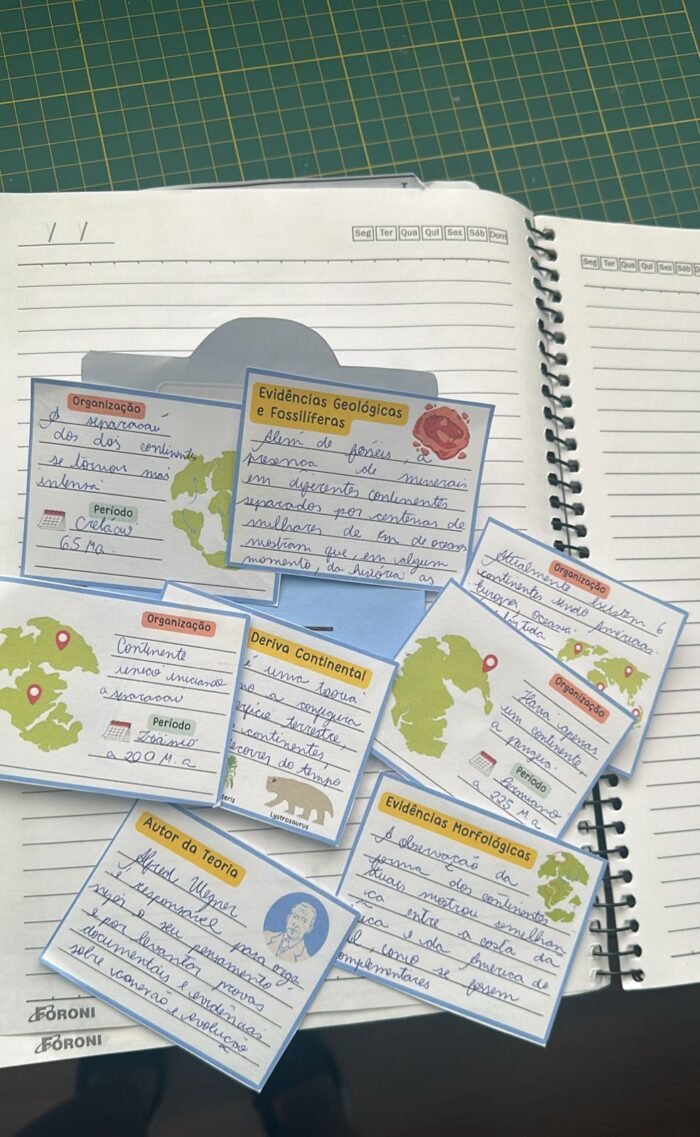 Seg Ter Qua Qui Sex Sáb Dom
Seg Ter Qua Qui Sex Sáb
Organização
A separação
dos dois continentes
se tornou mais
intensa
Período
Cretáceo
65 M.a.
Evidências Geológicas
e Fossilíferas
Além de fósseis, a
presença de minerais
em diferentes continentes
separados por centenas de
milhares de km de oceanos
mostram que, em algum
momento, da história as
Organização
Atualmente existem 6
continentes sendo Américas
Europa, Oceania
Antártida
Organização
Continente
único iniciando
a separação
Período
Triássico
a 200 M.a
Deriva Continental
é uma teoria
a configura
terrestre,
continentes,
decorrer do tempo
Lystrosaurus
Organização
Havia apenas
um continente,
a pangeia.
Período
Permiano
a 225 M.a
Autor da Teoria
Alfred Wegner
é responsável para orga
o seu pensamento
e por levantar provas
documentais e evidências
sobre conexão e evolução
Evidências Morfológicas
A observação da
forma dos continentes
atuais mostrou semelhan
entre a costa da
e da América do
como se fossem
complementares
FORONI
FORONI